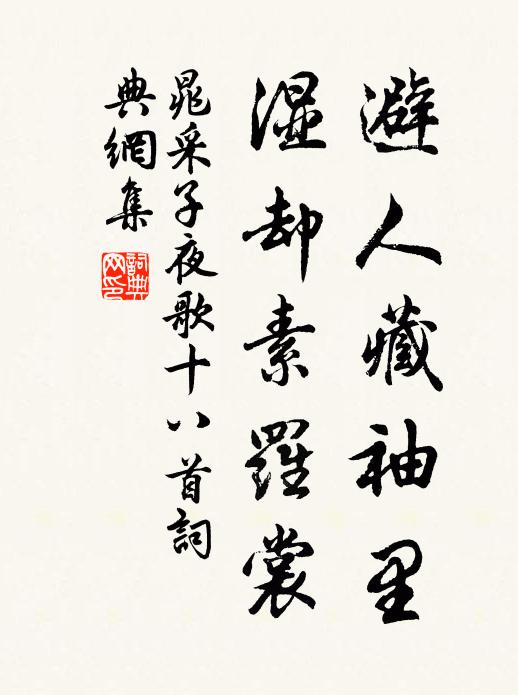 避人藏袖里
湿却素羅裳
晁采子夜歌十八首詞
典網集
詞典
网印